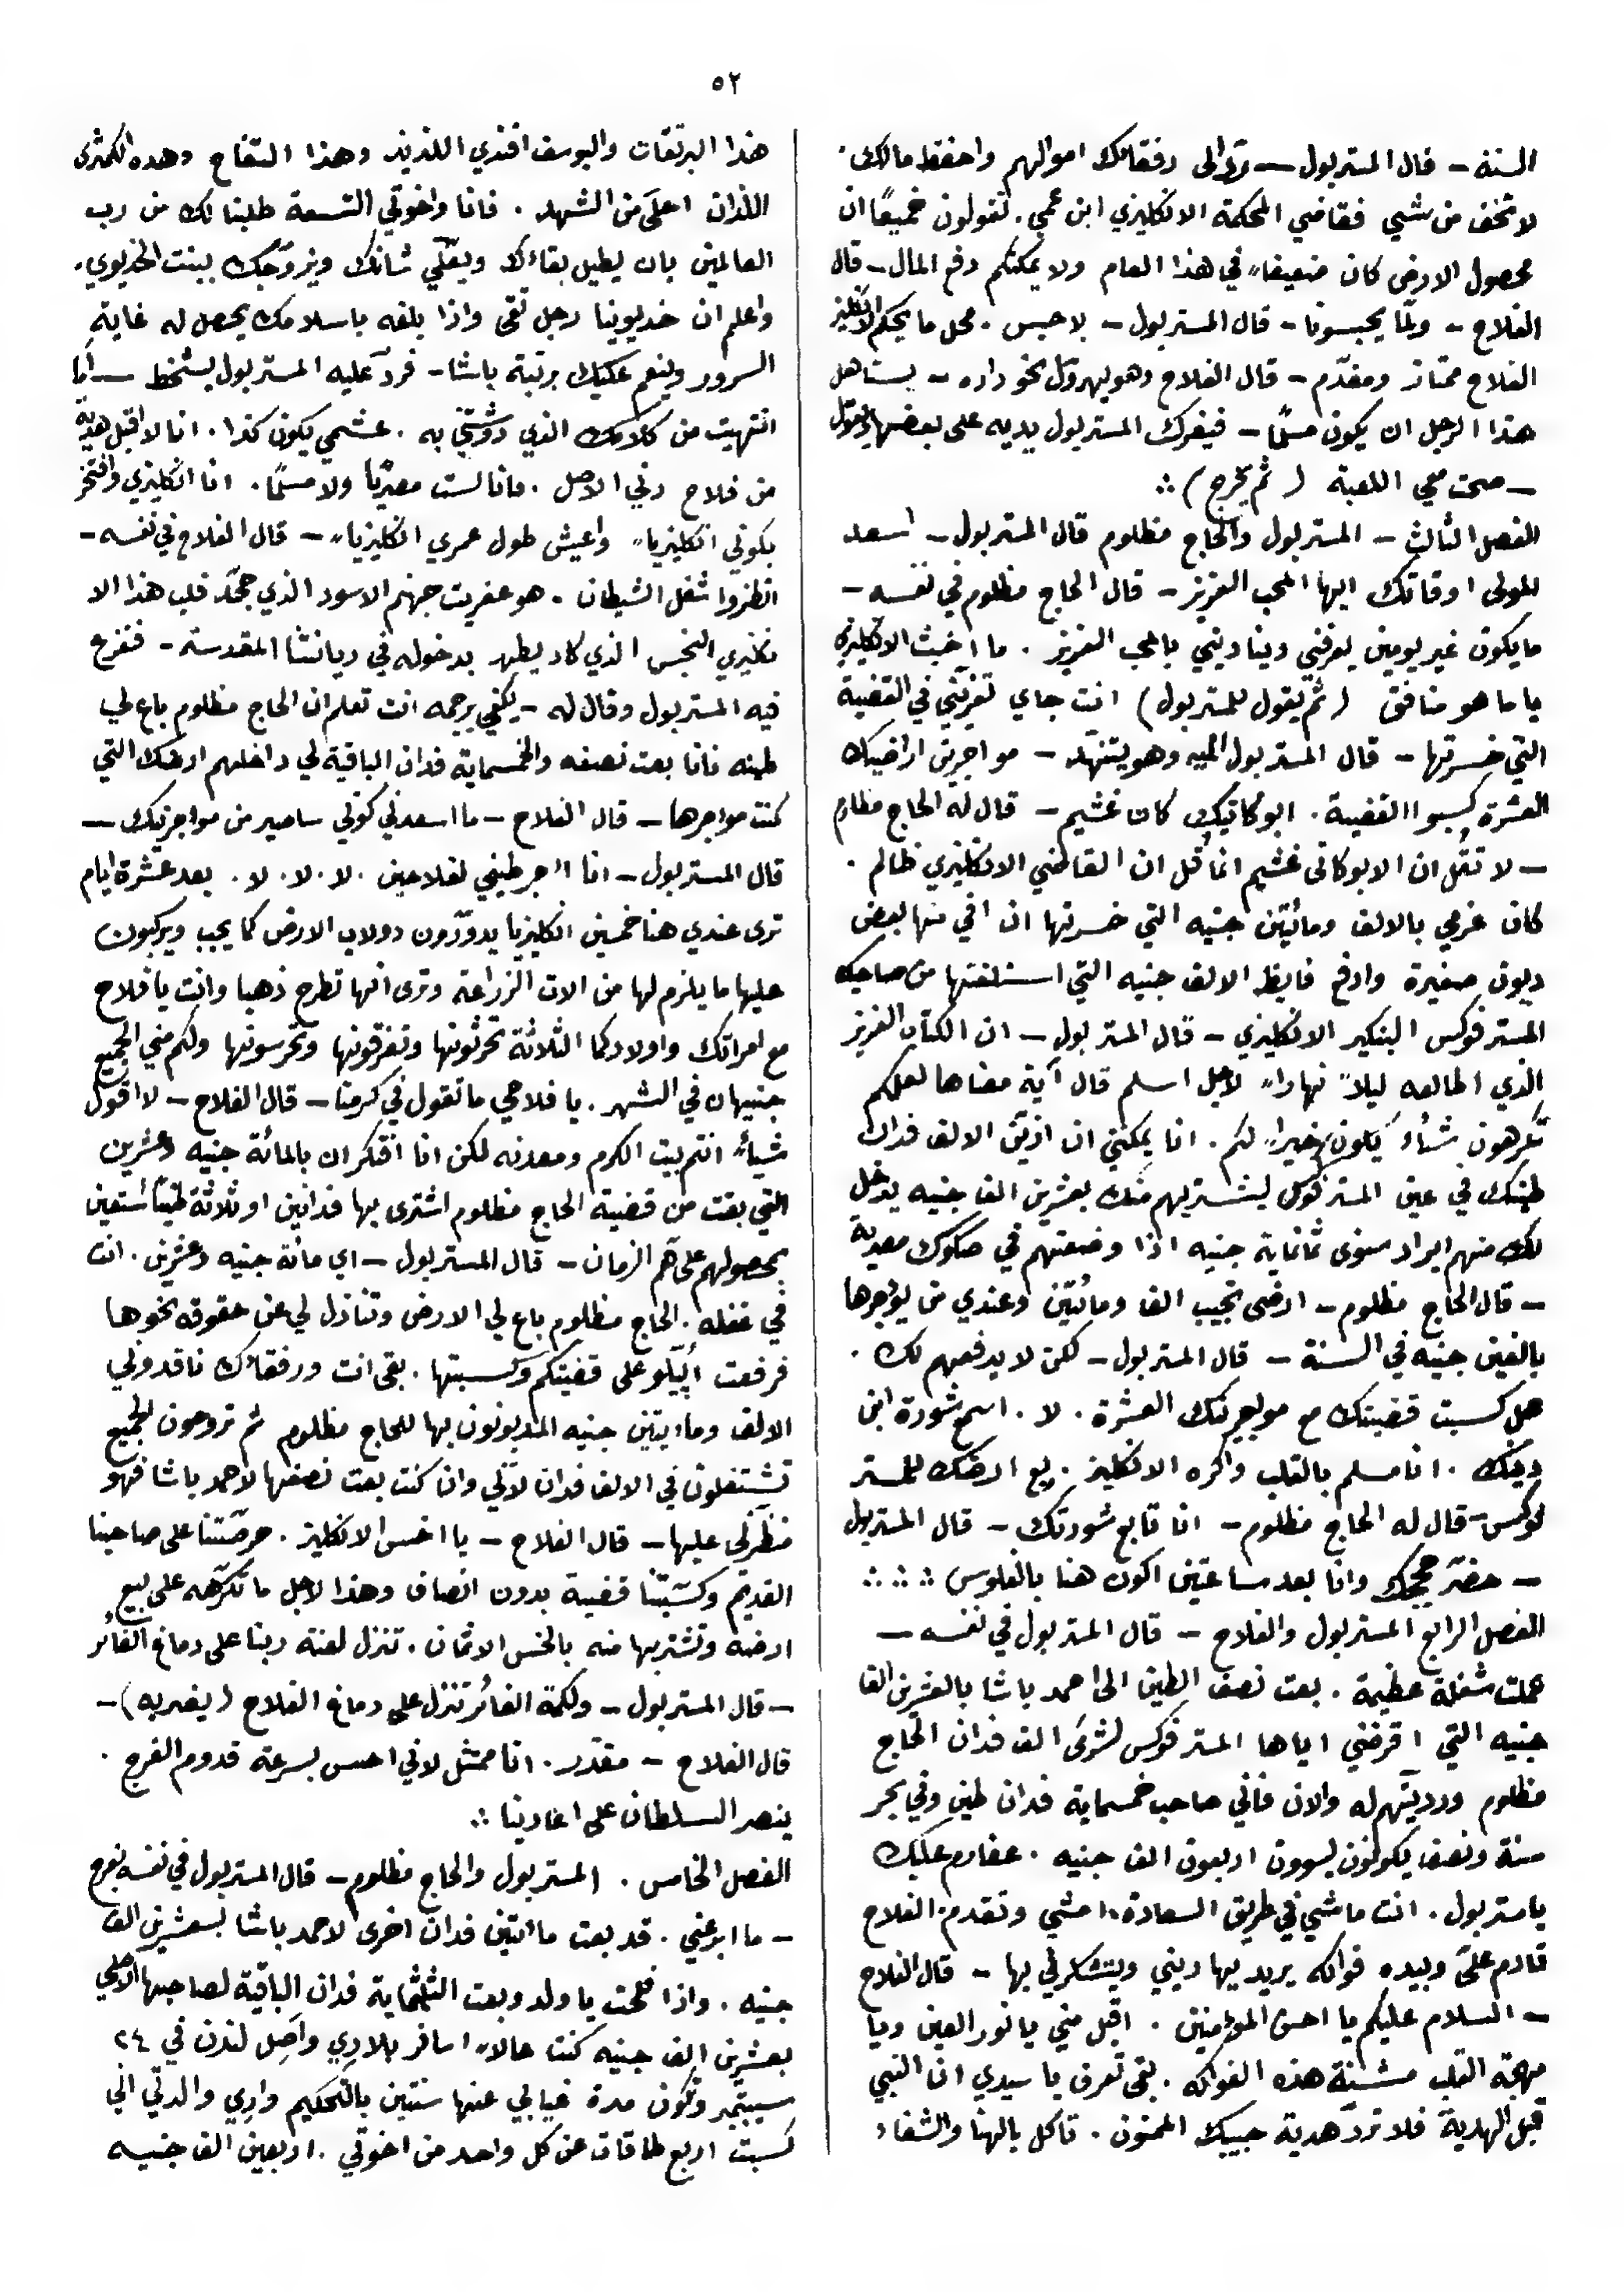 ٥٢
السنة – قال المستر بول – ترى الى رفقائك اموالهم واحفظ مالك.
لا تخف من شيي فقاضي المحكمة الانكليزي ابن عمي. تقولون جميعًا ان
محصول الارض كان ضعيفاً في هذا العام ولا يمكنكم دفع المال – قال
الفلاح – ولمّا يحبسونا – قال المستر بول – لا حبس. محل ما يحكم الانكليز
الفلاح ممتاز ومقدّم – قال الفلاح وهو يهرول نحو داره – يستاهل
هذا الرجل ان يكون مسلمًا – فيفرك المستر بول يديه على بعضها ويقول
– صحت معي اللعبة ( ثم يخرج ) ∴
الفصل الثالث – المستر بول والحاج مظلوم قال المستر بول – اسعد
المولى اوقاتك ايها المحب العزيز – قال الحاج مظلوم في نفسه –
ما يكون غير يومين يعرفني ويناديني بالمحب العزيز. ما اخبث الانكليزي
ياما هو منافق ( ثم يقول للمستر بول ) انت جاي تعزيني في القضية
التي خسرتها – قال المستر بول اليه وهو يتنهّد – مواجرين اراضيك
العشرة كسبوا القضية. ابوكاتيك كان غشيم – قال له الحاج مظلوم
– لا تقُل ان الابوكاتى غشيم انما قُل ان القاضي الانكليزي ظالم.
كان غرضي بالالف ومائتين جنيه التي خسرتها ان افي منها بعض
ديون صغيرة وادفع فايظ الالف جنيه التي استلفتها من صاحبك
المستر فوكس البنكير الانكليزي – قال المستر بول – ان الكتاب العزيز
الذي اطالعه ليلاً نهاراً لاجل اسلم قال آية معناها لعلكم
تكرهون شيأً يكون خيراً لكم. انا يمكنني ان ازيّن الالف فدان
طينك في عين المستر فوكس ليشتريهم منك بعشرين الف جنيه يدخل
لك منهم ايراد سنوى ثمانماية جنيه اذا وضعتهم في صكوك مصرية
– قال الحاج مظلوم – ارضى تجيب الف ومائتين وعندي من يؤجرها
بالفين جنيه في السنة – قال المستر بول – لكن لا يدفعهم لك.
هل كسبت قضيتك مع مويجرينك العشرة. لا. اسمع شورة ابن
دينك. انا مسلم بالقلب واكره الانكليز. بِع ارضك للمستر
فوكس – قال له الحاج مظلوم – انا تابع شورتك – قال المستر بول
– حضّر حججك وانا بعد ساعتين اكون هنا بالفلوس ∴ ∴
الفصل الرابع المستر بول والفلاح – قال المستر بول في نفسه –
عملت شغلة عظيمة. بعت نصف الطين الى احمد باشا بالعشرين الف
جنيه التي اقرضني اياها المستر فوكس لشرى الف فدان الحاج
مظلوم ورديتهم له والان فاني صاحب خمسماية فدان طين وفي بحر
سنة ونصف يكونون يسوون اربعون الف جنيه. عفارم عليك
يا مستر بول. انت ماشي في طريق السعادة. امشي وتقدم. الفلاح
قادم عليّ وبيده فواكه يريد يهاديني ويتشكرني بها – قال الفلاح
– السلام عليكم يا احسن المؤمنين. اقبل مني يا نور العين ويا
مهجة القلب مشنة هذه الفواكه. بقى تعرف يا سيدي ان النبي
قبل الهدية فلا تردّ هدية حبيبك الممنون. تاكل بالهنا والشفاء
هذا البرتقان واليوسف افندي اللذيذ وهذا التفاح وهذه الكمثرى
اللذان احلى من الشهد. فانا واخوتي التسعة طلبنا لك من رب
العالمين بان يطيل بقاءك ويعلّي شانك ويزوّجك ببنت الخديوي.
واعلم ان خديوينا رجل تقى واذا بلغه باسلامك يحصل له غاية
السرور وينعم عليك برتبة باشا – فردّ عليه المستر بول بسخط – أما
انتهيت من كلامك الذي دوّشتني به. عشمي يكون كذا. انا لا اقبل هدية
من فلاح دني الاصل. فانا لست مصريًا ولا مسلمًا. انا انكليزي وافتخر
بكوني انكليزياً واعيش طول عمري انكليزياً – قال الفلاح في نفسه –
انظروا شغل الشيطان. هو عفريت جهنم الاسود الذي جمّد قلب هذا الا
نكليزي النجس الذي كاد يطهر بدخوله في ديانتنا المقدسة – ففزع
فيه المستر بول وقال له – يكفي برجمه انت تعلم ان الحاج مظلوم باع لي
طينه فانا بعت نصفه والخمسماية فدان الباقية لي داخلهم ارضك التي
كنت مواجرها – قال الفلاح – ما اسعدني كوني ساصير من مواجرينك –
قال المستر بول – انا اأجر طيني لفلاحين. لا. لا. لا. بعد عشرة ايام
ترى عندي هنا خمسين انكليزيا يدوّرون دولاب الارض كما يجب ويركبون
عليها ما يلزم لها من الات الزراعة وترى انها تطرح ذهبا وانت يا فلاح
مع امراتك واولادكما الثلاثة تحرثونها وتعزقونها وتحرسونها ولكم مني الجميع
جنيهان في الشهر. يا فلاحي ما تقول في كرمنا – قال الفلاح – لا اقول
شيأً انتم بيت الكرم ومعدنه لكن انا افتكر ان بالمائة جنيه وعشرين
التي بقت من قضية الحاج مظلوم اشترى بها فدانين او ثلاثة طينًا استعين
بمحصولهم على همّ الزمان – قال المستر بول – اي مائة جنيه وعشرين. انت
في غفله. الحاج مظلوم باع لي الارض وتنازل لي عن حقوقه نحوها
فرفعت اُبيّلو على قضيتكم وكسبتها. بقى انت ورفقاك ناقدوني
الالف وماءيتين جنيه المديونون بها للحاج مظلوم ثم تروحون الجميع
تشتغلون في الالف فدان لانّي وان كنت بعت نصفها لاحمد باشا فهو
منظّرني عليها – قال الفلاح – يا اخس الانكليز. حرصّتنا على صاحبنا
القديم وكسّبتنا قضية بدون انصاف وهذا لاجل ما تكرّهه على بيع
ارضه وتشتريها منه بابخس الاثمان. تنزل لعنة ربنا على دماغ الغائر
– قال المستر بول – ولكمة الغائر تنزل على دماغ الفلاح ( يضربه ) –
قال الفلاح – مقدّر. انا ممتثل لاني احس بسرعة قدوم الفرج.
ينصر السلطان على اعادينا ∴
الفصل الخامس. المستر بول والحاج مظلوم – قال المستر بول في نفسه بفرح
– ما ابرعني. قد بعت مائتين فدان اخرى لاحمد باشا بعشرين الف
جنيه. واذا فلحت يا ولد وبعت الثلثماية فدان الباقية لصاحبها الاصلي
بعشرين الف جنيه كنت حالاً اسافر بلادي واَصِل لندن في ٢٤
سبتمبر وتكون مدة غيابي عنها سنتين بالتحكيم واري والدتي اني
كسبت اربع طاقات عن كل واحد من اخوتي. اربعين الف جنيه